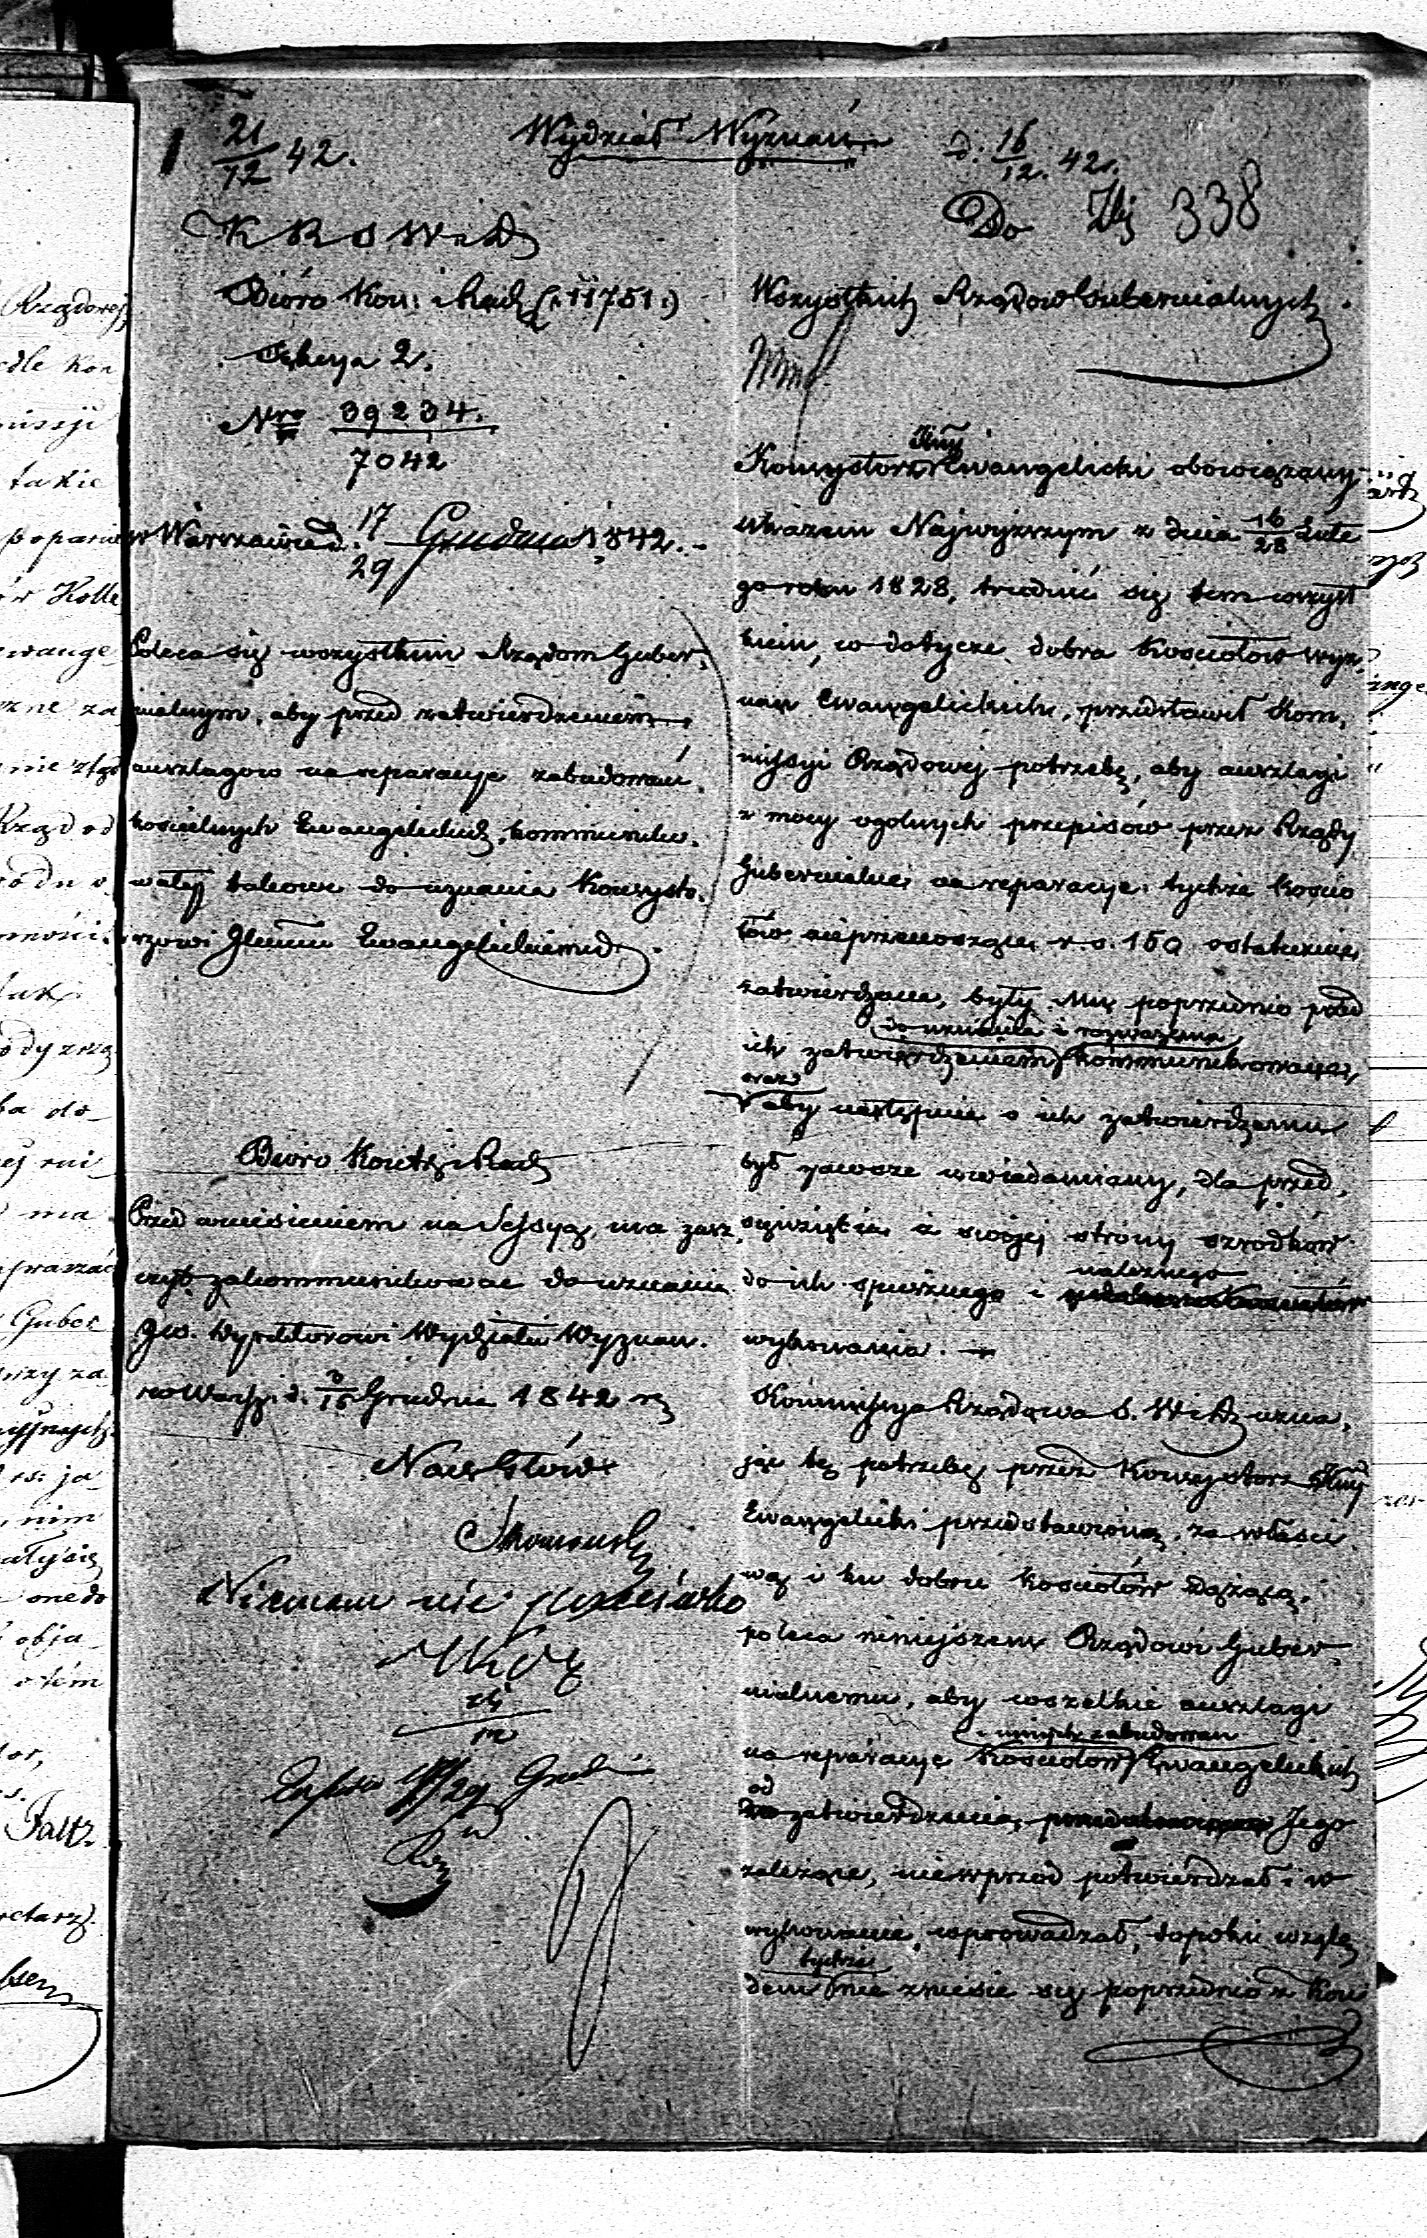 21/12 42.
Wydział Wyznań
d. 16/12. 42.
338
K R S W i D
Bióro Kon: i Rach (:11751:)
Sekcya 2.
Nro 39234./7042
w Warszawie d. 17/29 Grudnia 1842.
Poleca się wszystkim Rządom Guber-
nialnym, aby przed zatwierdzeniem
anszlagów na reparacye zabudowań
kościelnych Ewangelickich, kommuniko-
wały takowe do uznania Konsysto-
rzowi Glnmu Ewangelickiemu.
Bióro Kontr. i Rach
Przed wniesieniem na Sessyą, ma zasz-
czyt zakommunikować do uznania
JW. Dyrektorowi Wydziału Wyznań.
Grudnia 1842 r
Naczelnik
Niemam nic przeciwko
Do
Wszystkich Rządów Gubernialnych.
Konsystorz Glny Ewangelicki obowiązany
Ukazem Najwyższym z dnia 16/28 Lute
go roku 1828, trudnić się tem wszyst
kiem, co dotycze dobra Kościołów wyz-
nań Ewangelickich, przedstawił Kom-
missyi Rządowej potrzebę, aby anszlagi
z mocy ogólnych przepisów przez Rządy
Gubernialne na reparacye tychże Kościo
łów nieprzenoszące r s. 150 ostatecznie
zatwierdzane, były Mu poprzednio przed
do uznania i rozważenia
ich zatwierdzeniem kommunikowane,
oraz
aby następnie o ich zatwierdzeniu
był zawsze uwiadamiany, dla przed-
sięwzięcia z swojej strony szrodków
należnego
do ich spiesznego i
wykonania.
Kommissya Rządowa S. W i D. uzna-
jąc tę potrzebę przez Konsystorz Glny
Ewangelicki przedstawioną, za właści
wą i ku dobru kościołów dążącą,
poleca niniejszem Rządowi Guber-
nialnemu, aby wszelkie anszlagi
i innych zabudowań
na reparacye Kościołów Ewangelickich
od
zatwierdzenia, Jego
zależące, niewprzód potwierdzał i w
wykonanie wprowadzał, dopóki wzglę
tychże
dem nie zniesie się poprzednio z Kon